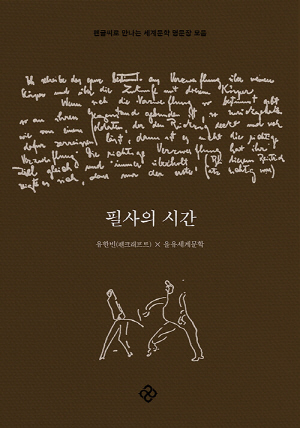 펜글씨로 만나는 세계문학 명문장 모음
Ich schreibe das ganz bestimmt aus Verzweiflung über meinen
Körper und über die Zukunft mit diesem Körper
Wenn sich die Verzweiflung so bestimmt gibt
so an ihren Gegenstand gebunden ist, so zurückgehalten
wie von einem Soldaten der den Rückzug deckt und sich
dafür zerreissen lässt, dann ist es nicht die richtige
Verzweiflung. Die richtige Verzweiflung hat ihr
Ziel gleich und immer überholt, (Bei diesem Beistrich
zeigte es sich, dass nur der erste Satz richtig war)
필사의 시간
유한빈(펜크래프트) × 을유세계문학